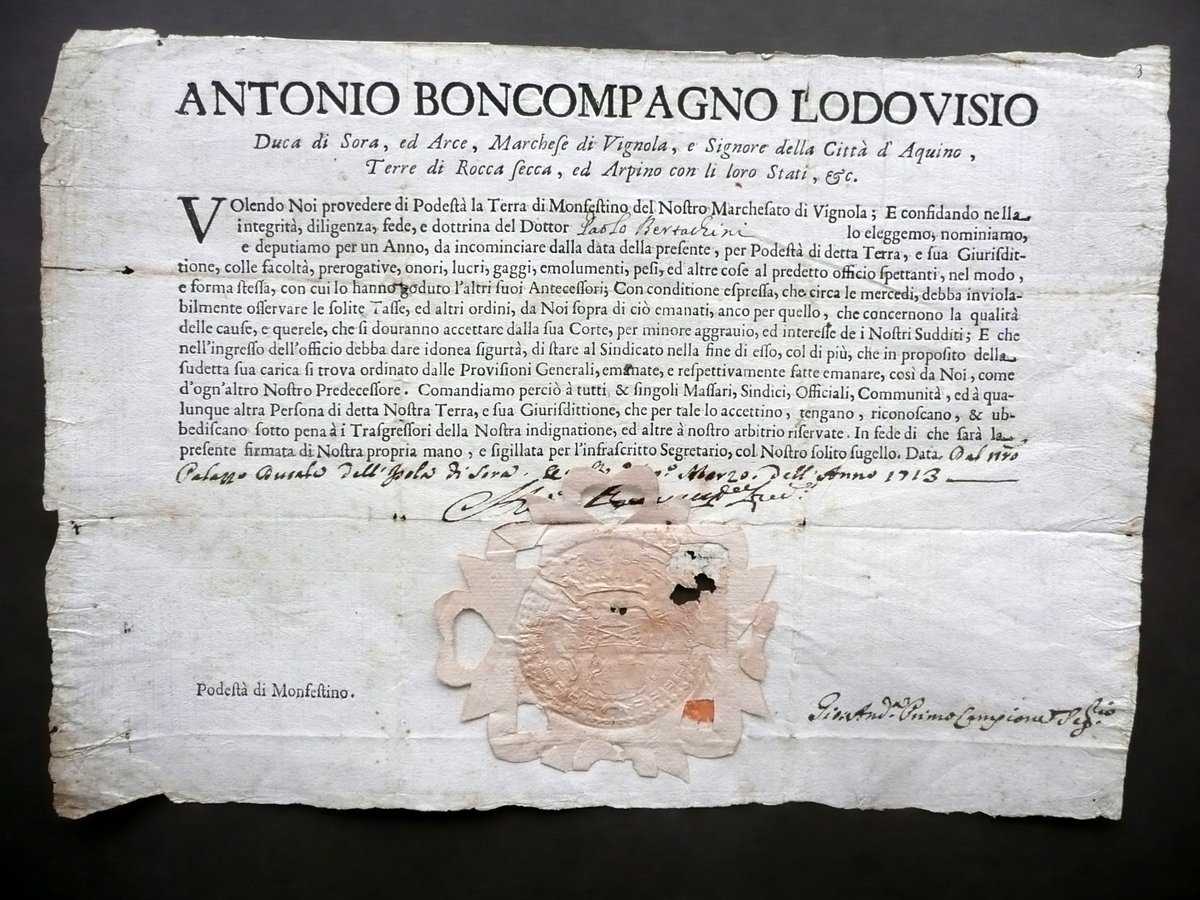 3
ANTONIO BONCOMPAGNO LODOVISIO
Duca di Sora, ed Arce, Marcheſe di Vignola, e Signore della Città d' Aquino,
Terre di Rocca ſecca, ed Arpino con li loro Stati, &c.
VOlendo Noi provedere di Podeſtà la Terra di Monfeſtino del Noſtro Marcheſato di Vignola; E confidando nella
integrità, diligenza, fede, e dottrina del Dottor Paolo Bertachini lo eleggemo, nominiamo,
e deputiamo per un Anno, da incominciare dalla data della preſente, per Podeſtà di detta Terra, e ſua Giuriſdit-
tione, colle facoltà, prerogative, onori, lucri, gaggi, emolumenti, peſi, ed altre coſe al predetto officio ſpettanti, nel modo,
e forma ſteſſa, con cui lo hanno goduto l'altri ſuoi Anteceſſori; Con conditione eſpreſſa, che circa le mercedi, debba inviola-
bilmente oſſervare le ſolite Taſſe, ed altri ordini, da Noi ſopra di ciò emanati, anco per quello, che concernono la qualità
delle cauſe, e querele, che ſi douranno accettare dalla ſua Corte, per minore aggrauio, ed intereſſe de i Noſtri Sudditi; E che
nell'ingreſſo dell'officio debba dare idonea ſigurtà, di ſtare al Sindicato nella fine di eſſo, col di più, che in propoſito della
ſudetta ſua carica ſi trova ordinato dalle Proviſioni Generali, emanate, e reſpettivamente fatte emanare, così da Noi, come
d'ogn'altro Noſtro Predeceſſore. Comandiamo perciò à tutti, & ſingoli Maſſari, Sindici, Officiali, Communità, ed à qua-
lunque altra Perſona di detta Noſtra Terra, e ſua Giuriſdittione, che per tale lo accettino, tengano, riconoſcano, & ub-
bediſcano ſotto pena à i Traſgreſſori della Noſtra indignatione, ed altre à noſtro arbitrio riſervate. In fede di che ſarà la
preſente firmata di Noſtra propria mano, e ſigillata per l'infraſcritto Segretario, col Noſtro ſolito ſugello. Data Dal nro
Palazzo Ducale dell'Isola di Sora, Marzo dell'Anno 1713
Podeſtà di Monfeſtino.
Gio: And.ª Primo Campione Seg.rio